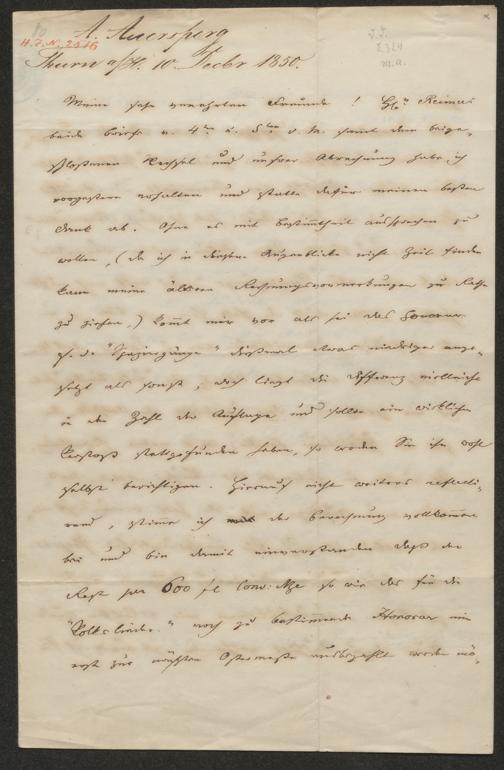 A. Auersperg
H.I.N. 2316
Thurn a/H. 10. Decbr 1850.
Meine sehr verehrten Freunde! Hrn Reimers
beide Briefe v. 4ten u. 5ten d. M. sammt dem beige-
schlossenen Wechsel und unsrer Abrechnung habe ich
vorgestern erhalten und statte dafür meinen besten
Dank ab. Ohne es mit Bestimmtheit aussprechen zu
wollen, (da ich in diesem Augenblicke nicht Zeit finden
kann meine älteren Rechnungsvormerkungen zu Rathe
zu ziehen,) kommt mir vor als sei das Honorar
"Spaziergänge" diesmal etwas niedriger ange-
setzt als sonst; doch liegt die Differenz vielleicht
in der Zahl der Auflage und sollte ein wirklicher
Verstoß stattgefunden haben, so werden Sie ihn wohl
selbst berichtigen. Hierauf nicht weiters reflecti-
rend, stimme ich der Berechnung vollkommen
bei und bin damit einverstanden daß der
Rest per 600 fl Conv: Mze so wie das für die
"Volkslieder" noch zu bestimmende Honorar mir
erst zur nächsten Ostermesse ausbezahlt werden mö-